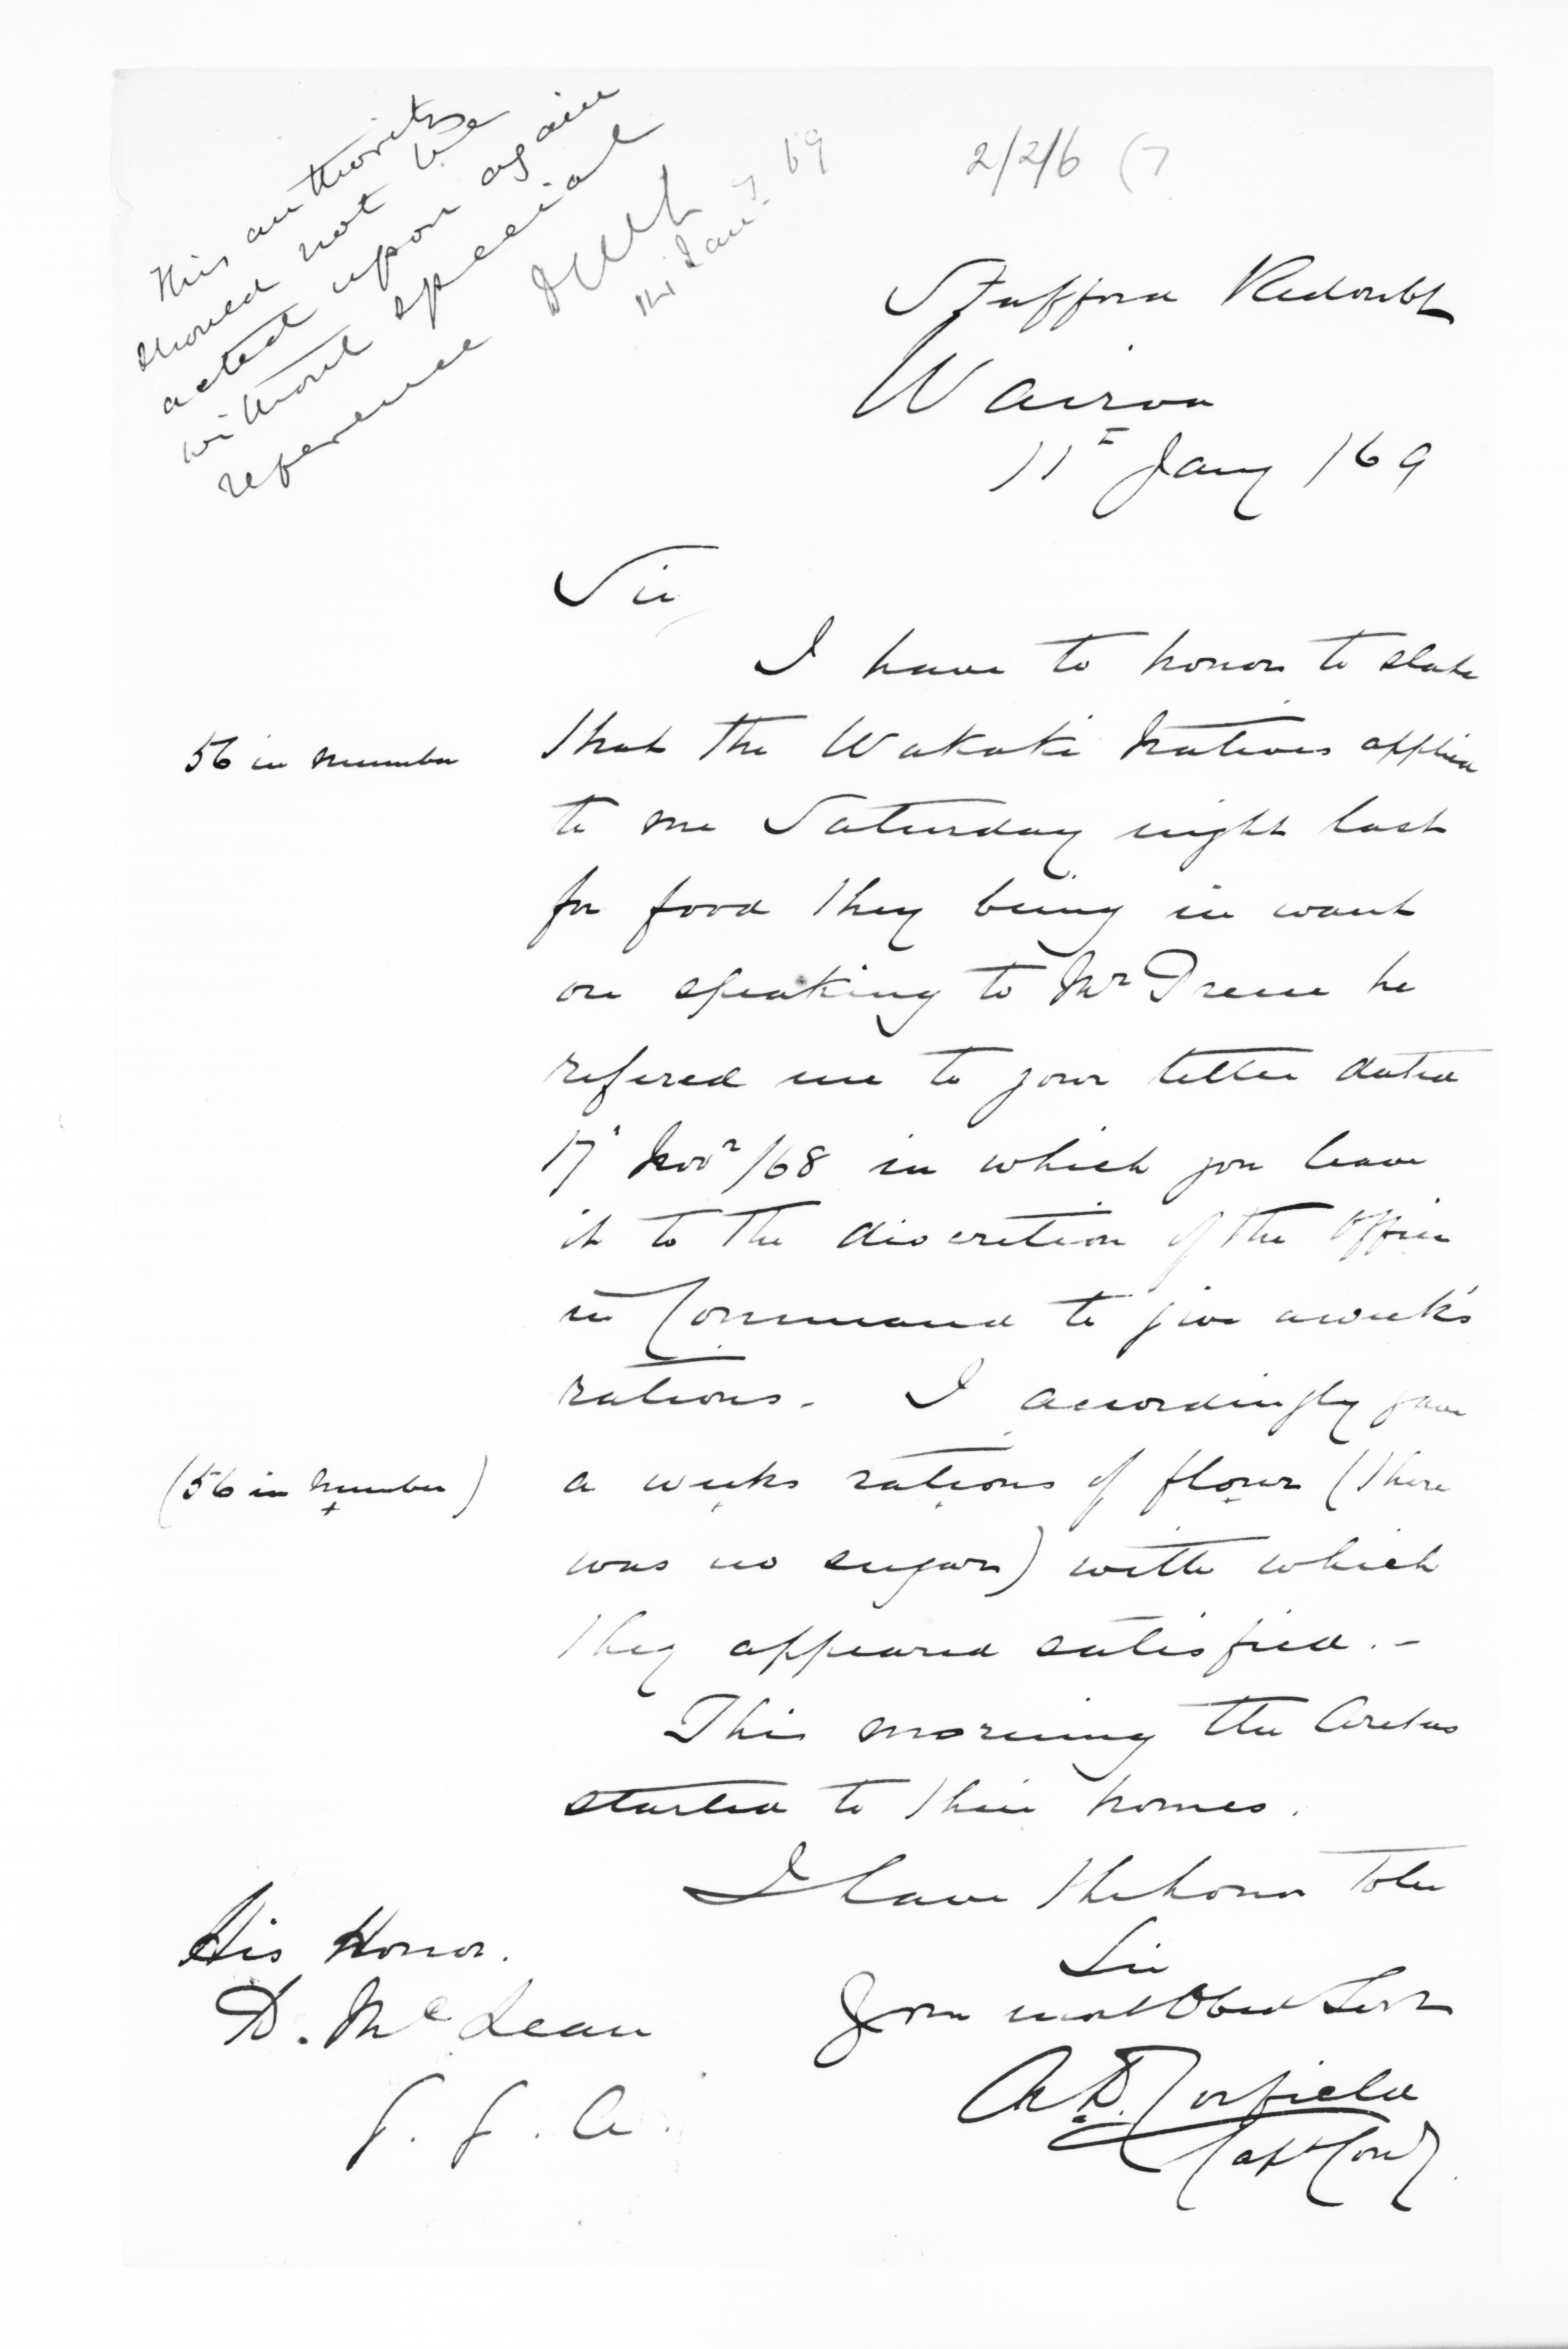 This authority
should not be
acted upon again
without special
reference
Jany 69
2/2/6 (7
Stafford Redoubt
Wairoa
11th Jany /69
Sir
I have to honor to state
56 in number
that the Wakaki Natives applied
to me Saturday night last
for food they being in want
on speaking to Mr he
refered me to your letter dated
17 Novr /68 in which you leave
it to the discretion of the Officer
in Command to give a week's
rations. I accordingly gave
(56 in number)
a weeks rations of flour (there
was no sugar) with which
they appeared satisfied. -
This morning the
started to their homes.
I have the honor to be
Sir
Your most Obed Servt
His Honor.
D. McLean
G. G. A.
Corfield
Capt Comdg